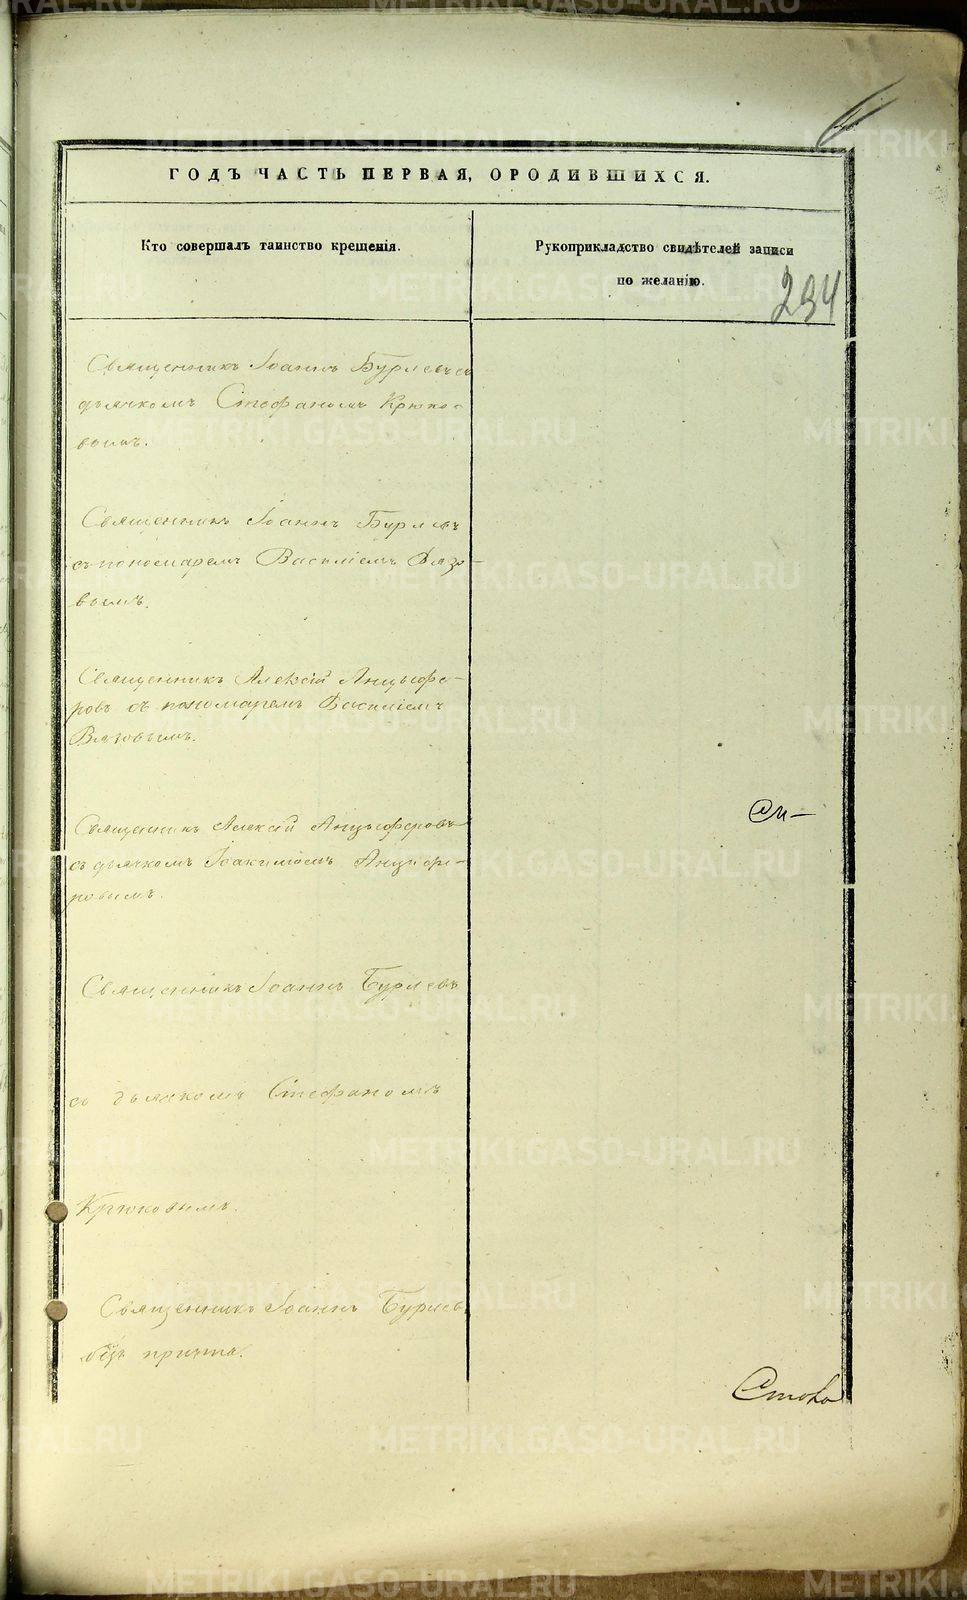 ГОДЪ ЧАСТЬ ПЕРВАЯ, О РОДИВШИХСЯ.
Кто совершалъ таинство крещенія.
Рукоприкладство свидѣтелей записи
по желанію.
234
Священникъ Іоаннъ Бурлевъ съ
дьячкомъ Стефаномъ Крюко-
вымъ.
Священникъ Іоаннъ Бурлевъ
съ пономаремъ Василіемъ Вязо-
вымъ.
Священникъ Алексій Анцыфе-
ровъ съ пономаремъ Василіемъ
Вязовымъ.
Священникъ Алексій Анцыферовъ
съ дьячкомъ Іоакимомъ Анцифе-
ровымъ.
Священникъ Іоаннъ Бурлевъ
съ дьячкомъ Стефаномъ
Крюковымъ.
Священникъ Іоаннъ Бурлевъ
безъ причта.
METRIKI.GASO-URAL.RU